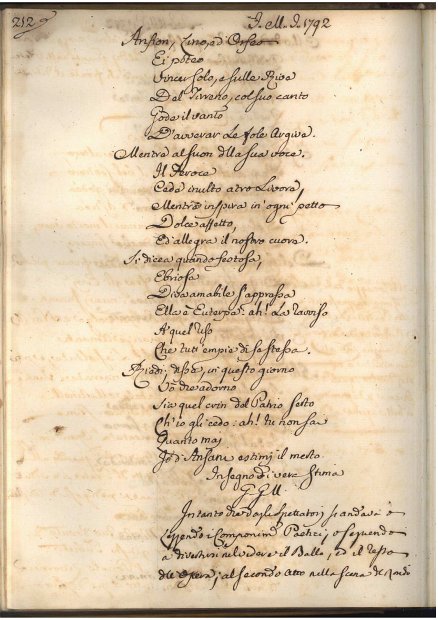 212
J. M. J. 1792
Anfion, Lino, ed Orfeo
Ei poteo
Vincer solo, e sulle Rive
Del Tirreno, col suo canto
Gode il vanto
D'avverar Le fole Argive.
Mentre al suon della sua voce.
Il feroce
Ceda invitto atro Livore,
Mentre inspira in ogni petto
Dolce affetto,
Ed allegra il nostro cuore.
Si dicea quando festosa,
Ebriosa
Diva amabile s'appressa
Ella è Euterpa: ah! La ravviso
A quel
Che tutt' empie di se stessa.
Riedi, disse, in questo giorno
adorno
Sia quel crin del Patrio serto
Ch'io gli cedo: ah! tu non sai
Quanto mai
Jo d'Ansani estimi il merto.
In segno di vera stima
Intanto che dagli Spettatori si andava
Leggendo i Componim. Poetici, o seguendo
a divertirsi in vedere il Ballo, ed il resto
dell'Opera; al secondo Atto nella scena di